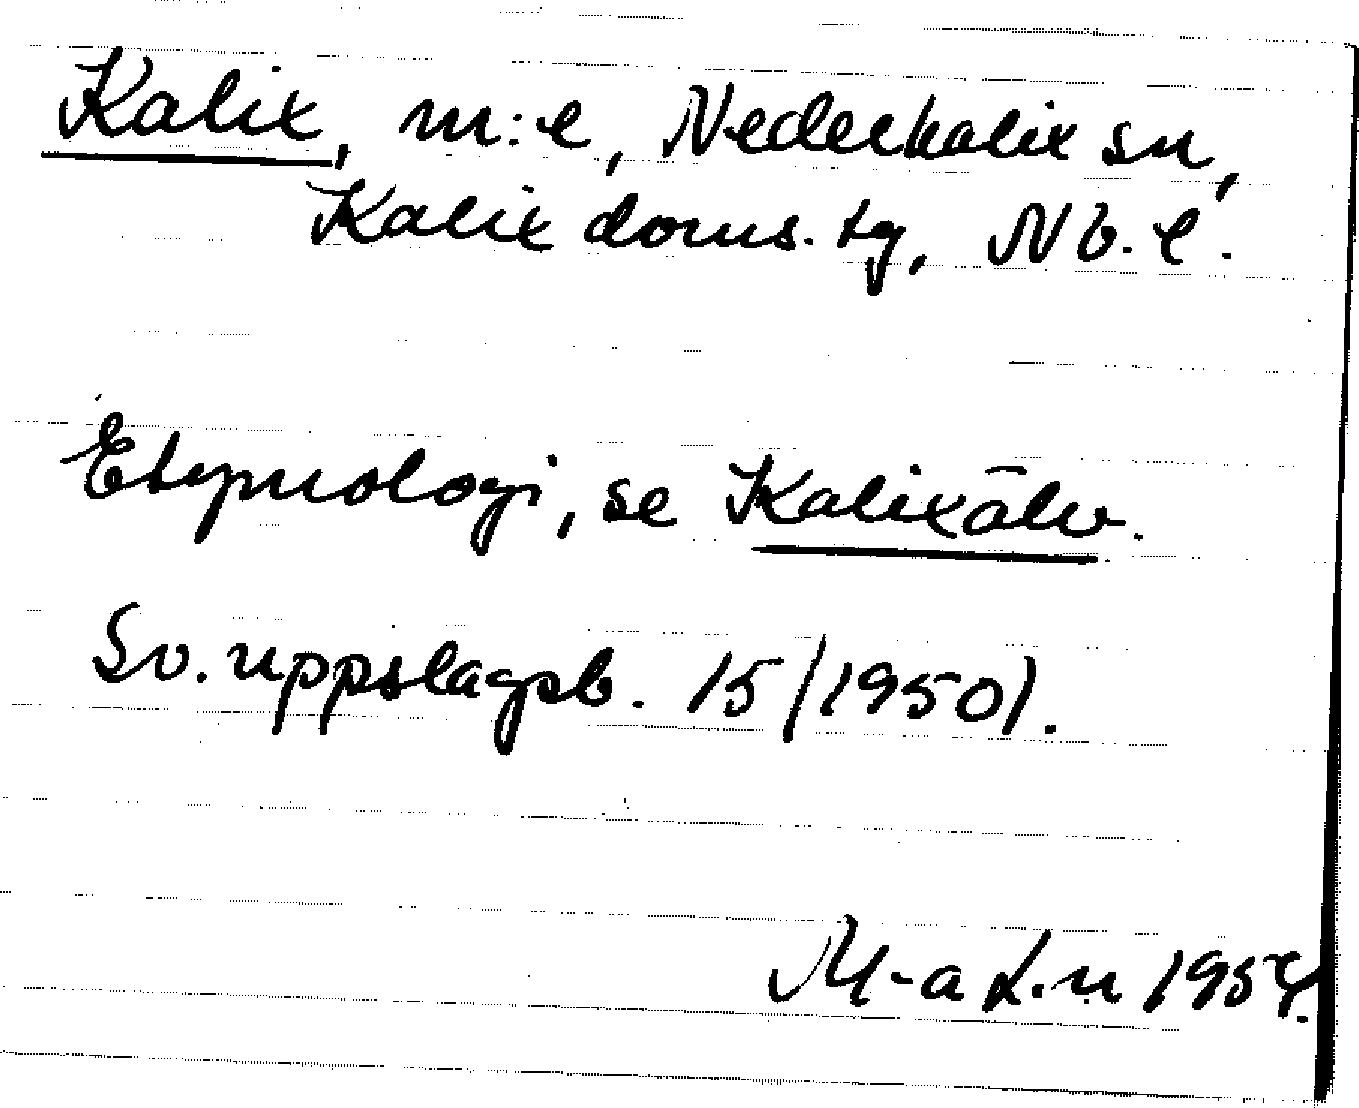 Kalix, m:e, Nederkalix sn,
Kalix doms. tg, Nb. l.
Etymologi, se Kalixälv.
Sv. uppslagsb. 15 (1950).
M-a L.n 1954.